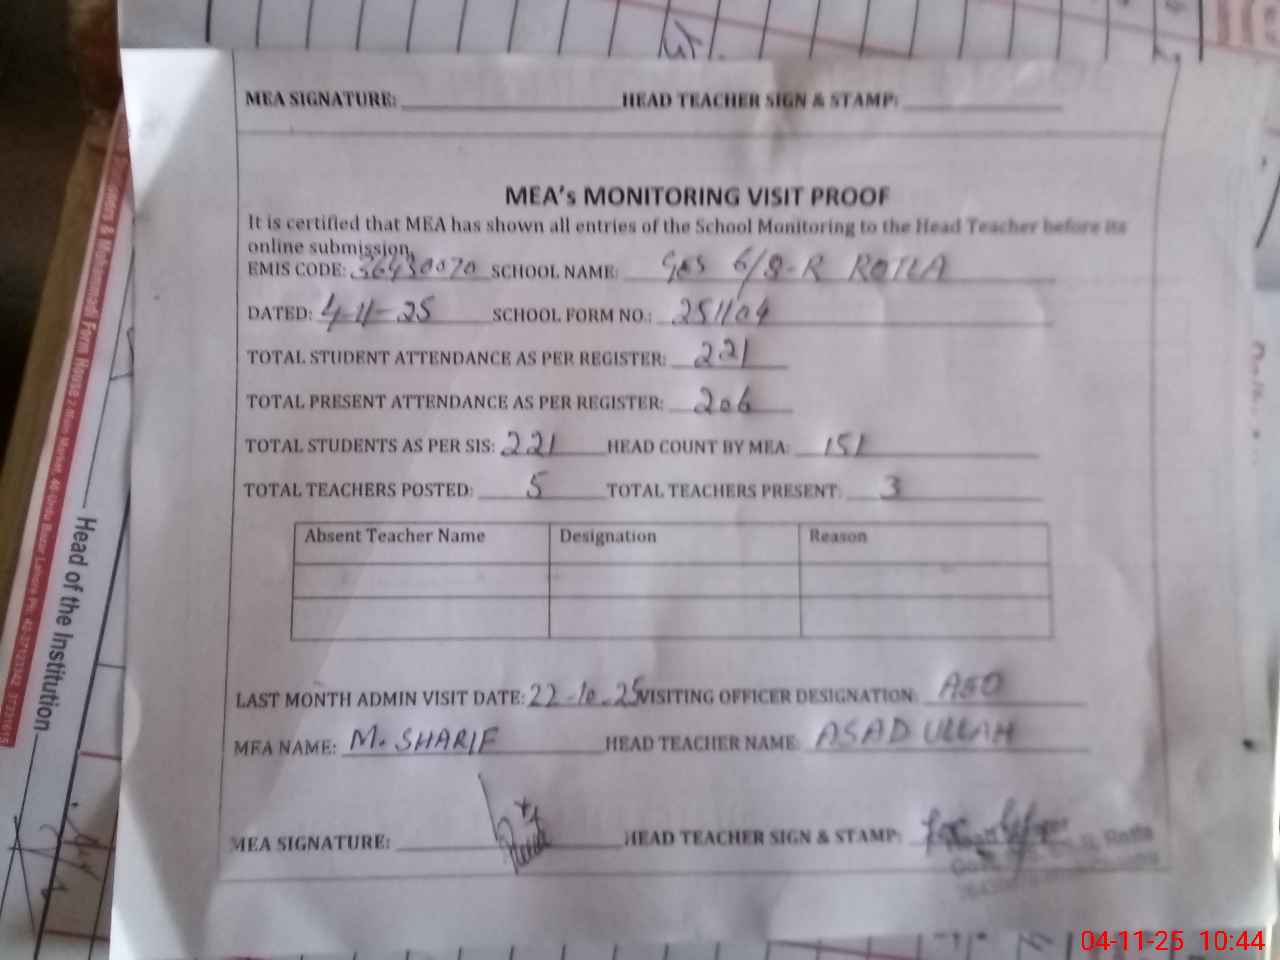 MEA SIGNATURE: HEAD TEACHER SIGN & STAMP:
MEA's MONITORING VISIT PROOF
It is certified that MEA has shown all entries of the School Monitoring to the Head Teacher before its
online submission.
EMIS CODE: 36430070 SCHOOL NAME: GES 6/8-R ROTLA
DATED: 4-11-25 SCHOOL FORM NO.: 251104
TOTAL STUDENT ATTENDANCE AS PER REGISTER: 221
TOTAL PRESENT ATTENDANCE AS PER REGISTER: 206
TOTAL STUDENTS AS PER SIS: 221 HEAD COUNT BY MEA: 151
TOTAL TEACHERS POSTED: 5 TOTAL TEACHERS PRESENT: 3
Absent Teacher Name Designation Reason
LAST MONTH ADMIN VISIT DATE: 22-10-25 VISITING OFFICER DESIGNATION: AEO
MEA NAME: M. SHARIF HEAD TEACHER NAME: ASAD ULLAH
MEA SIGNATURE: HEAD TEACHER SIGN & STAMP:
Head of the Institution
& Muhammadi Form House 2-Main Market, 40-Urdu Bazar Lahore Ph: 42-37123342
04-11-25 10:44